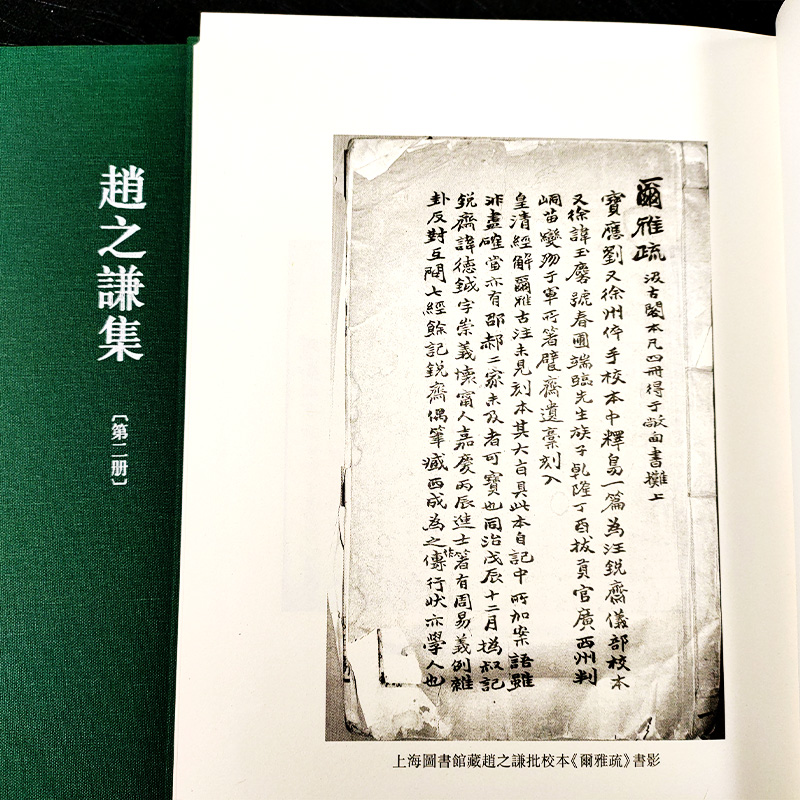 趙之謙集
〔第二册〕
爾雅疏 汲古閣本凡四冊得于廠甸書攤上
寶應劉又徐州倅手校本中釋鳥一篇為汪銳齋儀部校本
又徐諱玉麐號春圃端臨先生族子乾隆丁酉拔貢官廣西州判
峒苗變歿于軍所箸甓齋遺稾刻入
皇清經解爾雅古注未見刻本其大恉具此本自記中所加案語雖
非盡確當亦有邵郝二家未及者可寶也同治戊辰十二月撝叔記
銳齋諱德鉞字崇義懷甯人嘉慶丙辰進士箸有周易義例雜
卦反對互問七經餘記銳齋偶筆臧西成為之作傳行狀亦學人也
上海圖書館藏趙之謙批校本《爾雅疏》書影